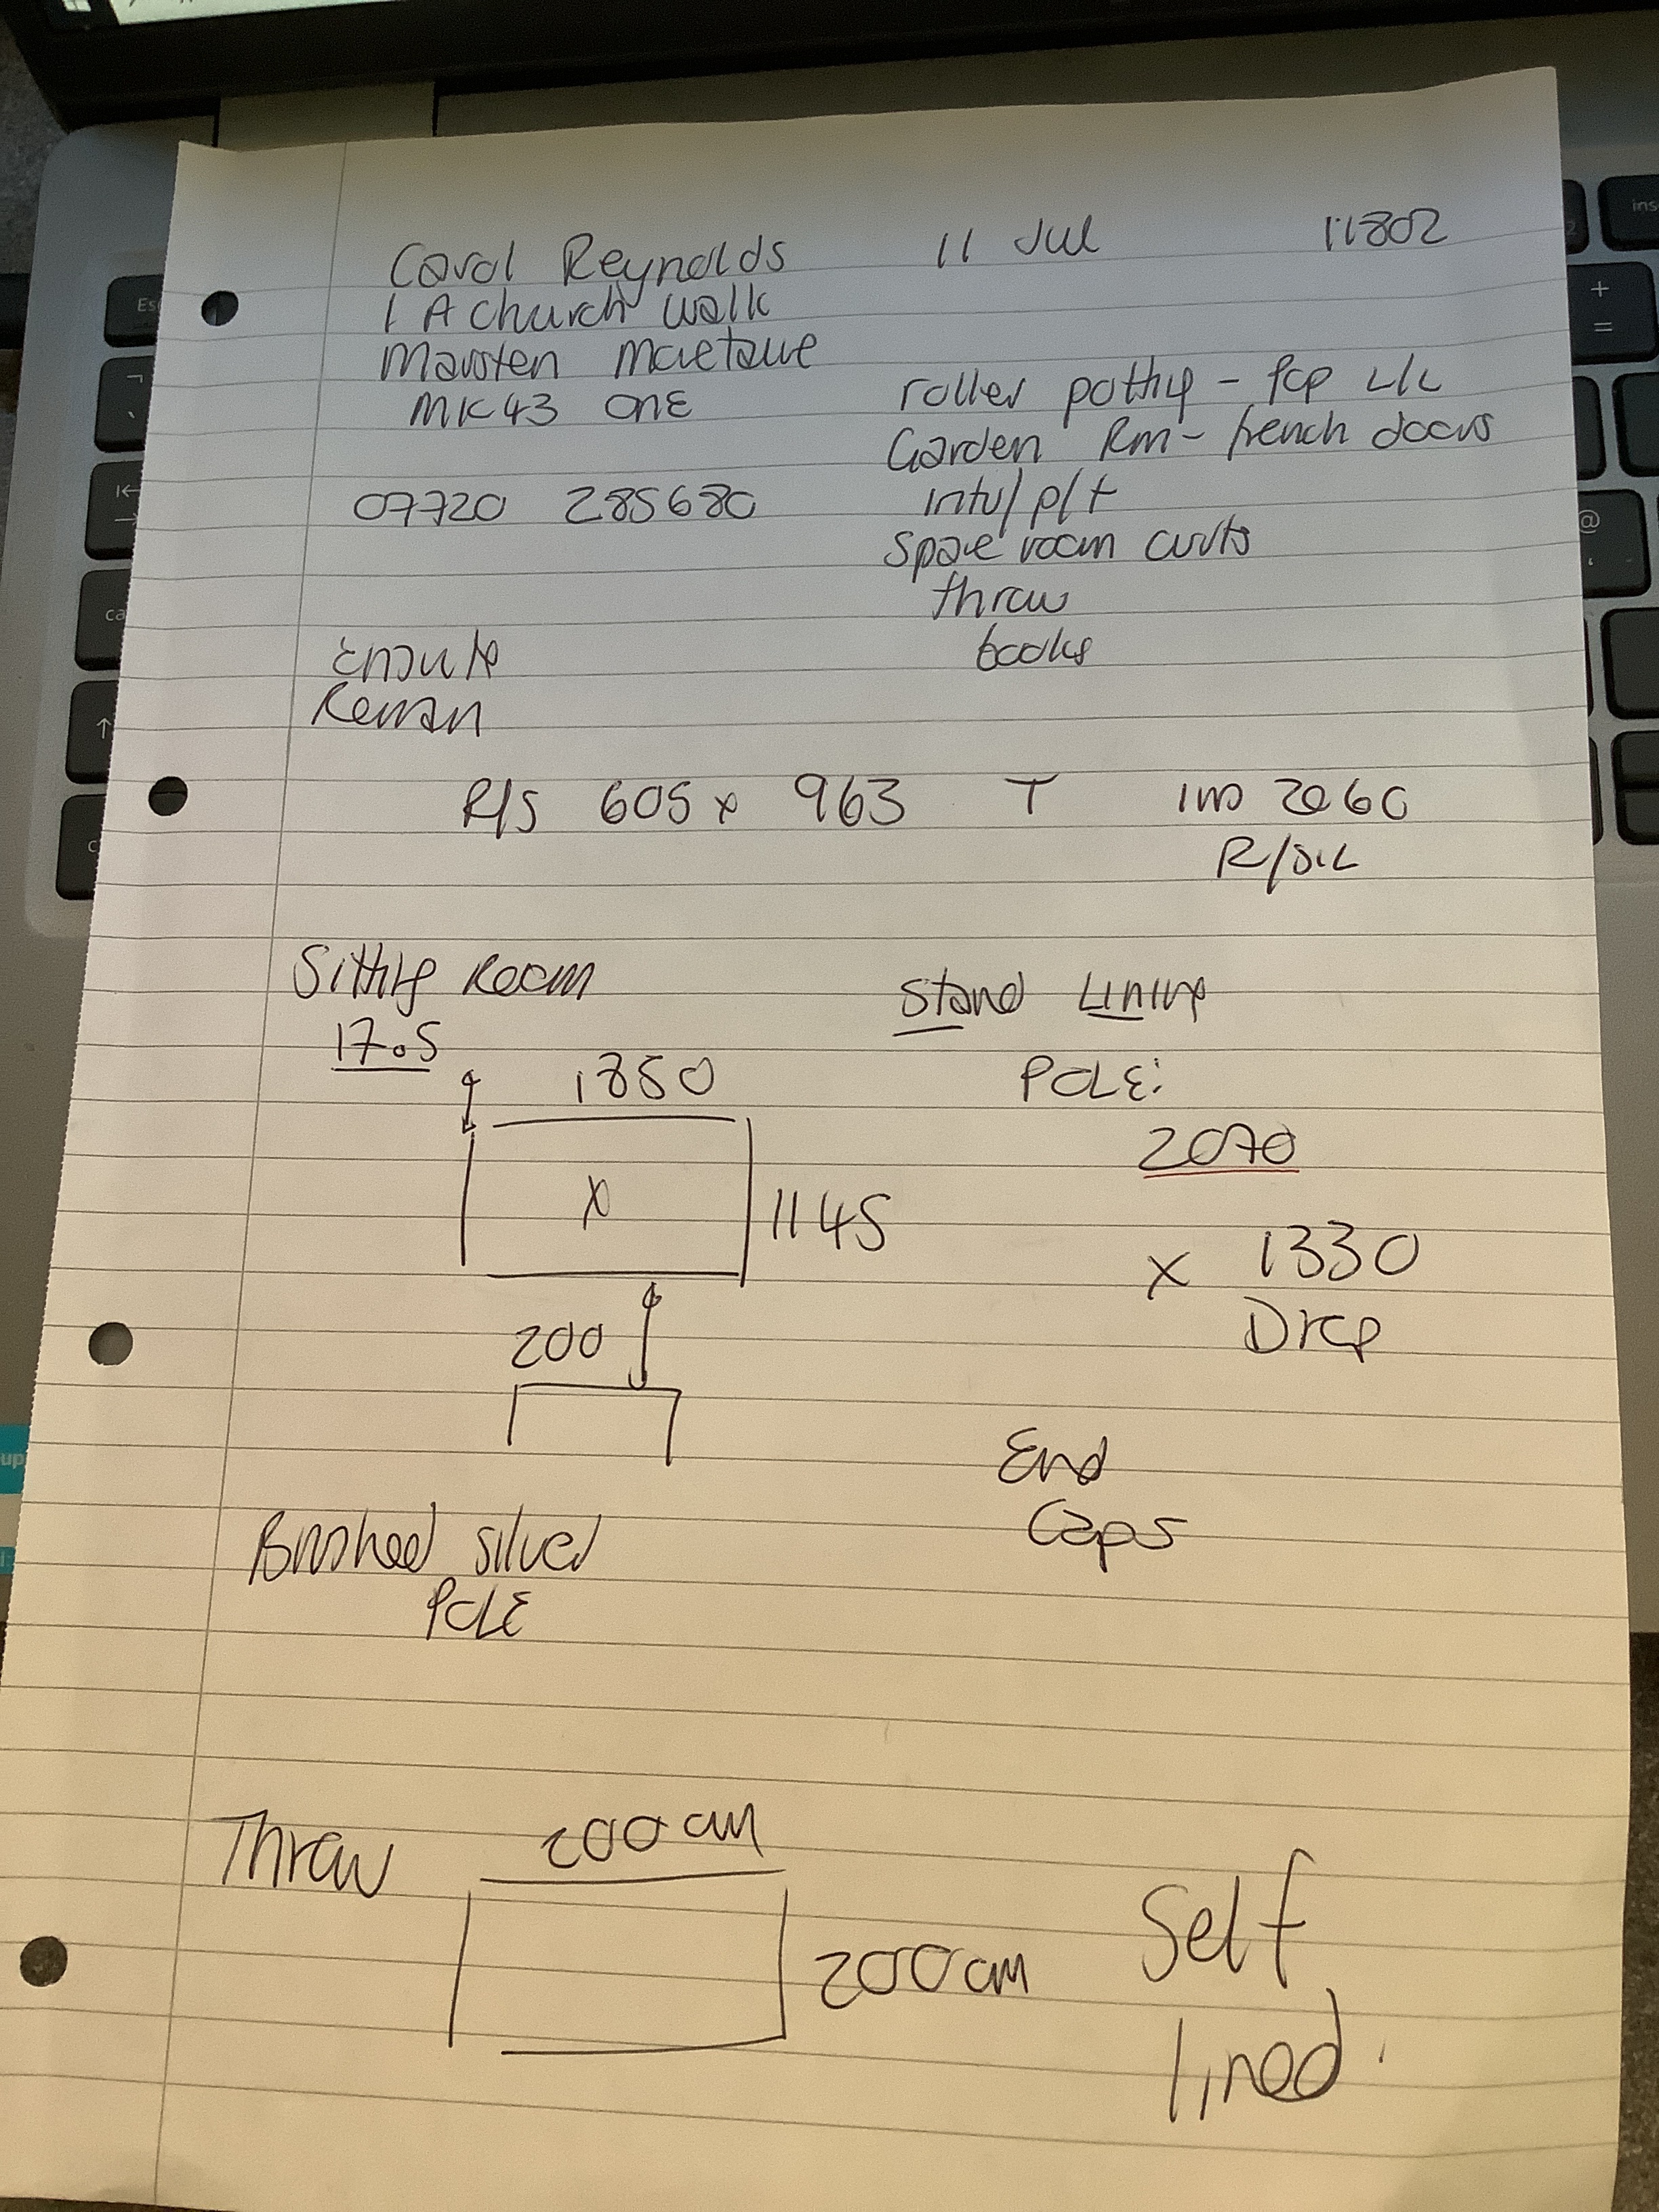 Carol Reynolds 11 Jul 11802
1 A Church Walk
Marsten Moretaine
MK43 0NE
roller pottig - pop L/L
Garden Rm - french doors
07720 285680
intu/p/t
Spare room curts
throw
books
Ensuite
Roman
R/S 605 x 963 T 1no 2060
R/SIL
Sitting Room
Stand Lining
17.5
1850
POLE:
2070
X
1145
x 1330
Drop
200
End
Caps
Brushed silver
POLE
Throw
200cm
200cm
Self
lined.